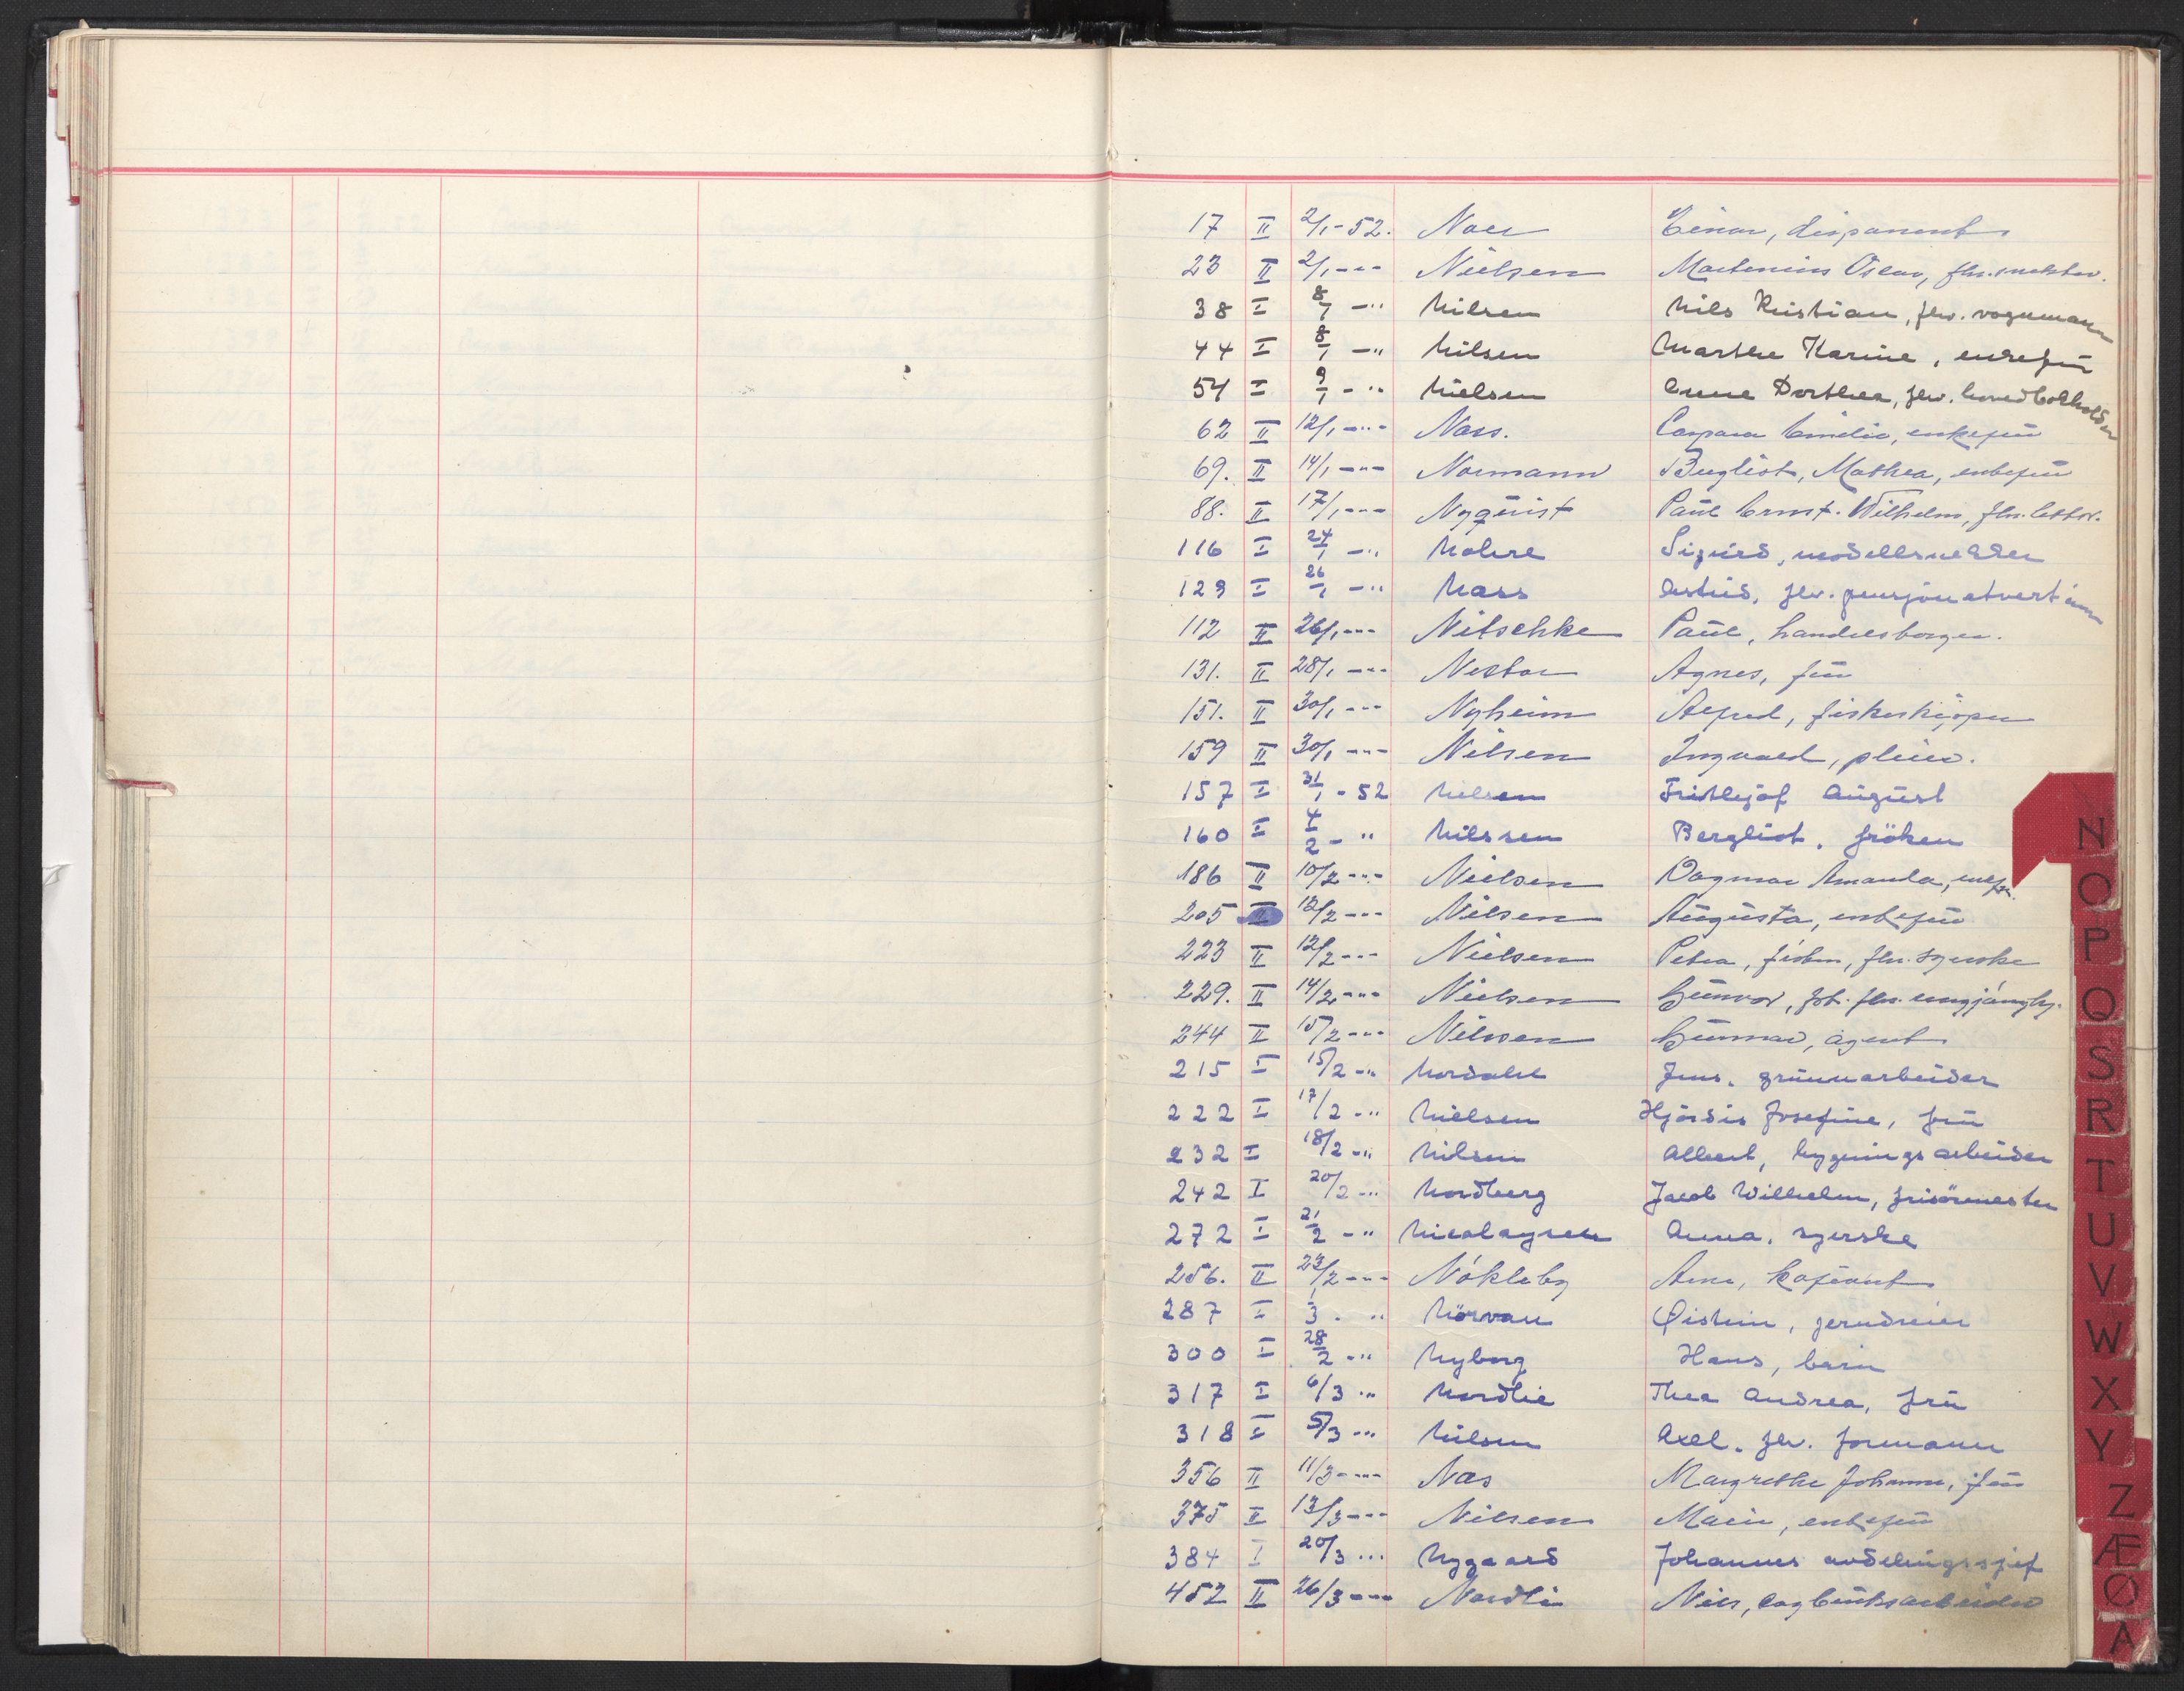 17 II 2/1-52. Næss Einar, disponent
23 II 2/1 -"- Nielsen Martenius Oscar, fhv.
38 I 8/1 -" Nilsen Nils Kristian, fhv. vognmann
44 I 8/1 -" Nilsen Marthe Karine, enkefrü
54 I 9/1 -" Nielsen Anne Dorthea, fhv.
62 II 12/1 -"- Næss. Caspara Emilie, enkefrü
69. II 14/1 -"- Normann Bergliot, Mathea, enkefrü
88. II 17/1 -"- Nyqüist Paül Ernst Wilhelm, fhv. lektor.
116 I 24/1 -" Sigürd, modellsnekker
129 I 26/1 -" Næss Astrid, fhv. pensjonatvertinne
112 II 26/1 -"- Nitschke Paül, handelsborger.
131. II 28/1 -"- Nestor Agnes, frü
151. II 30/1 -"- Nyheim Alfred, fiskeskipper
159 II 30/1 -"- Nilsen Ingvald, pleier.
157 I 31/1 - 52 Nilsen Fridthjof Aügüst
160 I 4/2 - " Nilssen Bergliot, fröken
186 II 10/2 -"- Nielsen Dagmar Amanda, enkefr.
205 II 12/2 -"- Nilsen Aügüsta, enkefrü
223 II 12/2 -"- Nielsen Petra, fröken, fhv. syerske
229. II 14/2 -"- Nielsen Günvor, frk. fhv. rengjøringshj.
244 II 15/2 -"- Nilssen Günnar, agent
215 I 15/2 -" Nordahl Jens, grünnarbeider
222 I 17/2 -" Nielsen Hjördis Josefine, frü
232 I 18/2 -" Nilsen Albert, bygningsarbeider
242 I 20/2 -" Nordberg Jacob Wilhelm, frisörmester
272 I 21/2 -" Nicolaysen Anna, syerske
256. II 23/2 -"- Nökleby Arne,
287 I 3 . " Nörvan Øistein, jerndreier
300 I 28/2 -" Nyborg Hans, barn
317 I 6/3 -" Nordlie Thea Andrea, frü
318 I 5/3 -" Nilsen Axel, fhv. formann
356 II 11/3 -"- Næs Margrethe Johanne, frü
375 II 13/3 -"- Nilsen Marie, enkefrü
384 I 20/3 -" Nygaard Johannes avdelingssjef
452 II 26/3 -"- Nordli Nils, sagbrüksarbeider
N
O
P
Q
S
R
T
U
V
W
X
Y
Z
Æ
Ø
A